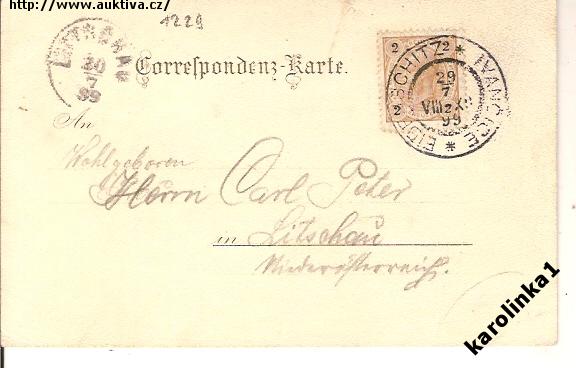 http://www.auktiva.cz/
1229
LITSCHAU
30
7
99
Correspondenz-Karte.
2 2
2
EIBENSCHITZ * IVANČICE *
29
7
VIII
99
An
Wohlgeboren
Herrn Carl Peter
in Litschau
Niederösterreich.
karolinka1